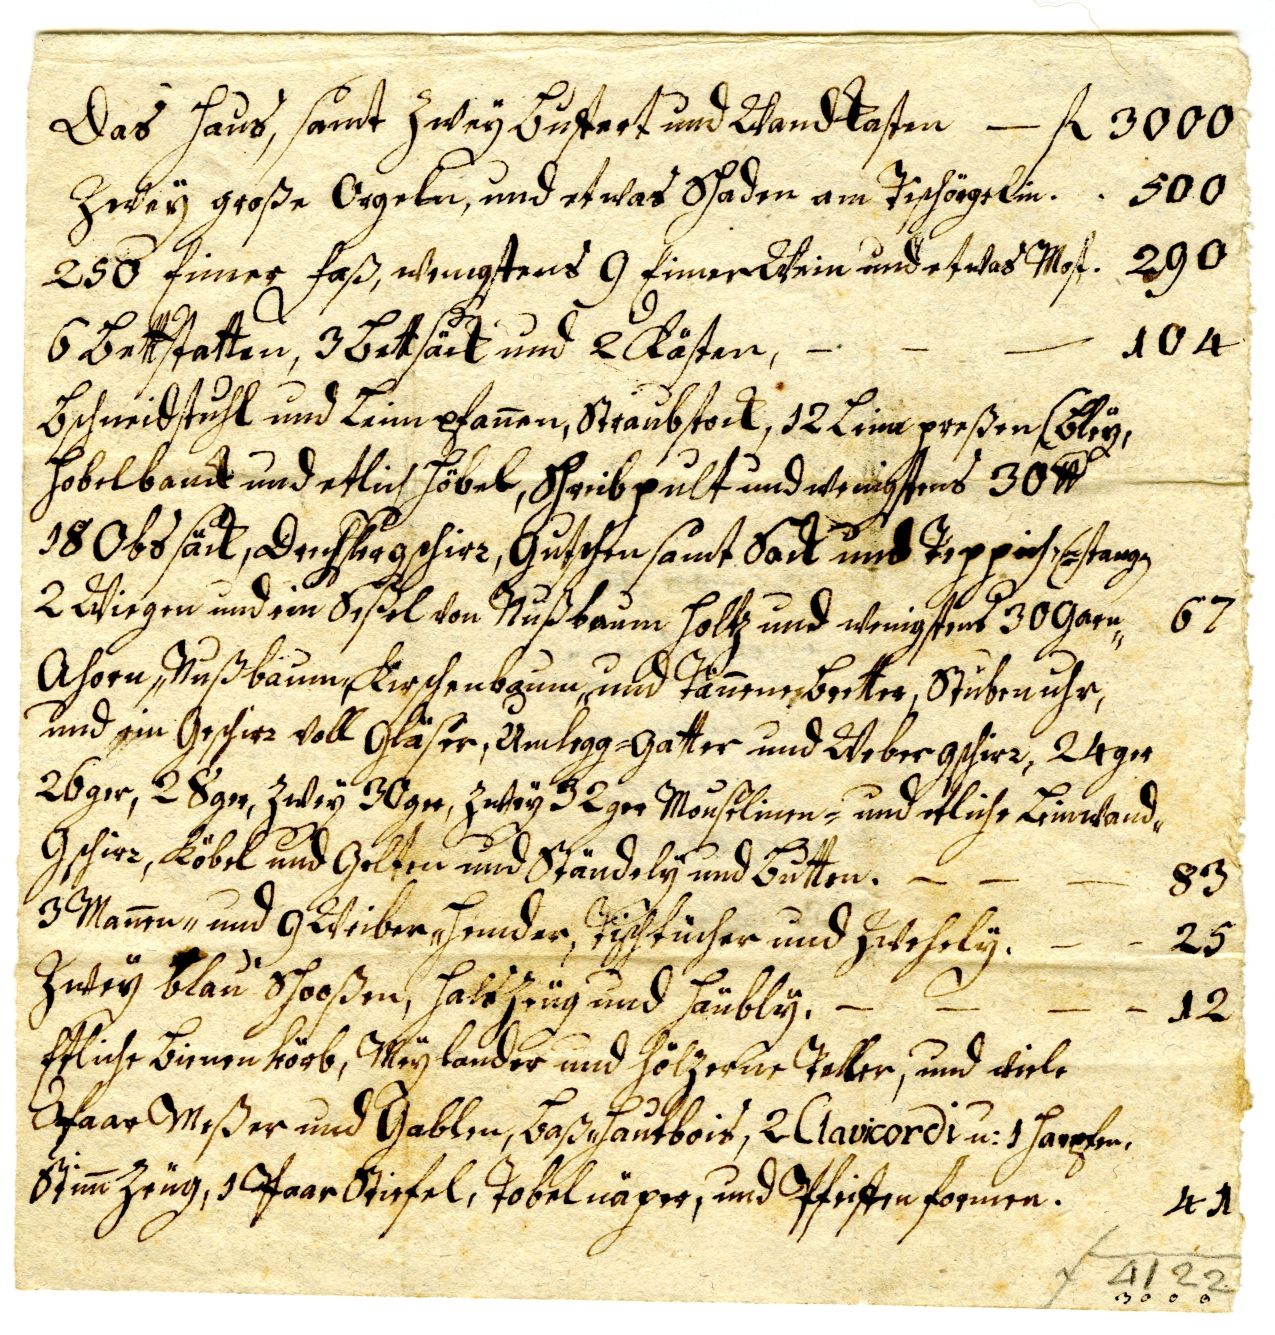 Das Haus, samt Zwey Buffert und Wandkasten — fl 3000
Zwey große Orgeln, und etwas Schaden am Tischörgelin. . 500
250 Eimer Faß, wenigstens 9 Eimer Wein und etwas Most. 290
6 Bettstatten, 3 Bettsäck und 2 Kästen, — — — 104
Bschneidstuhl und Leimpfannen, Straubstock, 12 Leim preßen (Bley,
Hobelbanck und etlich Höbel, Schreibpult und wenigstens 30 ℔
18 Obssäck, Drechslergschirr, Gutschen samt Sack und Teppich, (=stangen
2 Wiegen und ein Seßel von Nußbaum Holtz und wenigstens 30 Garn„ 67
Ahorn„ Nußbaum„ Kirschenbaum„ und Tannene Bretter, Stubenuhr,
und ein Geschirr voll Gläser, Umlegg=Gatter und Webergschirr, 24ger
26ger, 28ger, Zwey 30ger, Zwey 32ger Mouselinen= und etliche Leinwand„
Gschirr, Köbel und Gelten und Ständely und Butten. — — — 83
3 Mannen„ und 9 Weiber„ Hemder, Tischtücher und Zwehely. — - 25
Zwey blau Schooßen, Halszeüg und Häubly. — — — - 12
Etliche Bienenkörb, Meylander und Hölzerne Teller, und viele
Paar Meßer und Gablen, Baß„Hautbois, 2 Clavicordi u: 1 Harpfen.
Stimm Zeüg, 1 Paar Stiefel, Tobelnäper, und Pfeiffenformen. 41
f 4122
3000